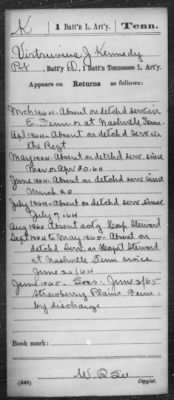 K | 1 Batt'n L. Art'y. | Tenn.
Vitruvius J. Kennedy
Pvt, Batt'y D, 1 Batt'n Tennessee L. Art'y.
Appears on Returns as follows:
Mch 1864. Absent on detchd service
E. Tenn. or at Nashville Tenn.
Apl 1864. Absent on detchd Serv in
the Regt
May 1864. Absent on detchd serv. since
Apr 20. 64
June 1864. Absent on detchd serv since
March 20
July 1864. Absent on detchd Serv since
July 7, 64
Aug 1864 Absent Hosp Steward
Sept 1864 to May 1865. Absent on
detchd Serv. as Hospt Steward
at Nashville Tenn since
June 24/64
June 1865. Loss. June 2/65
Strawberry Plains Tenn.
by discharge
Copyist.